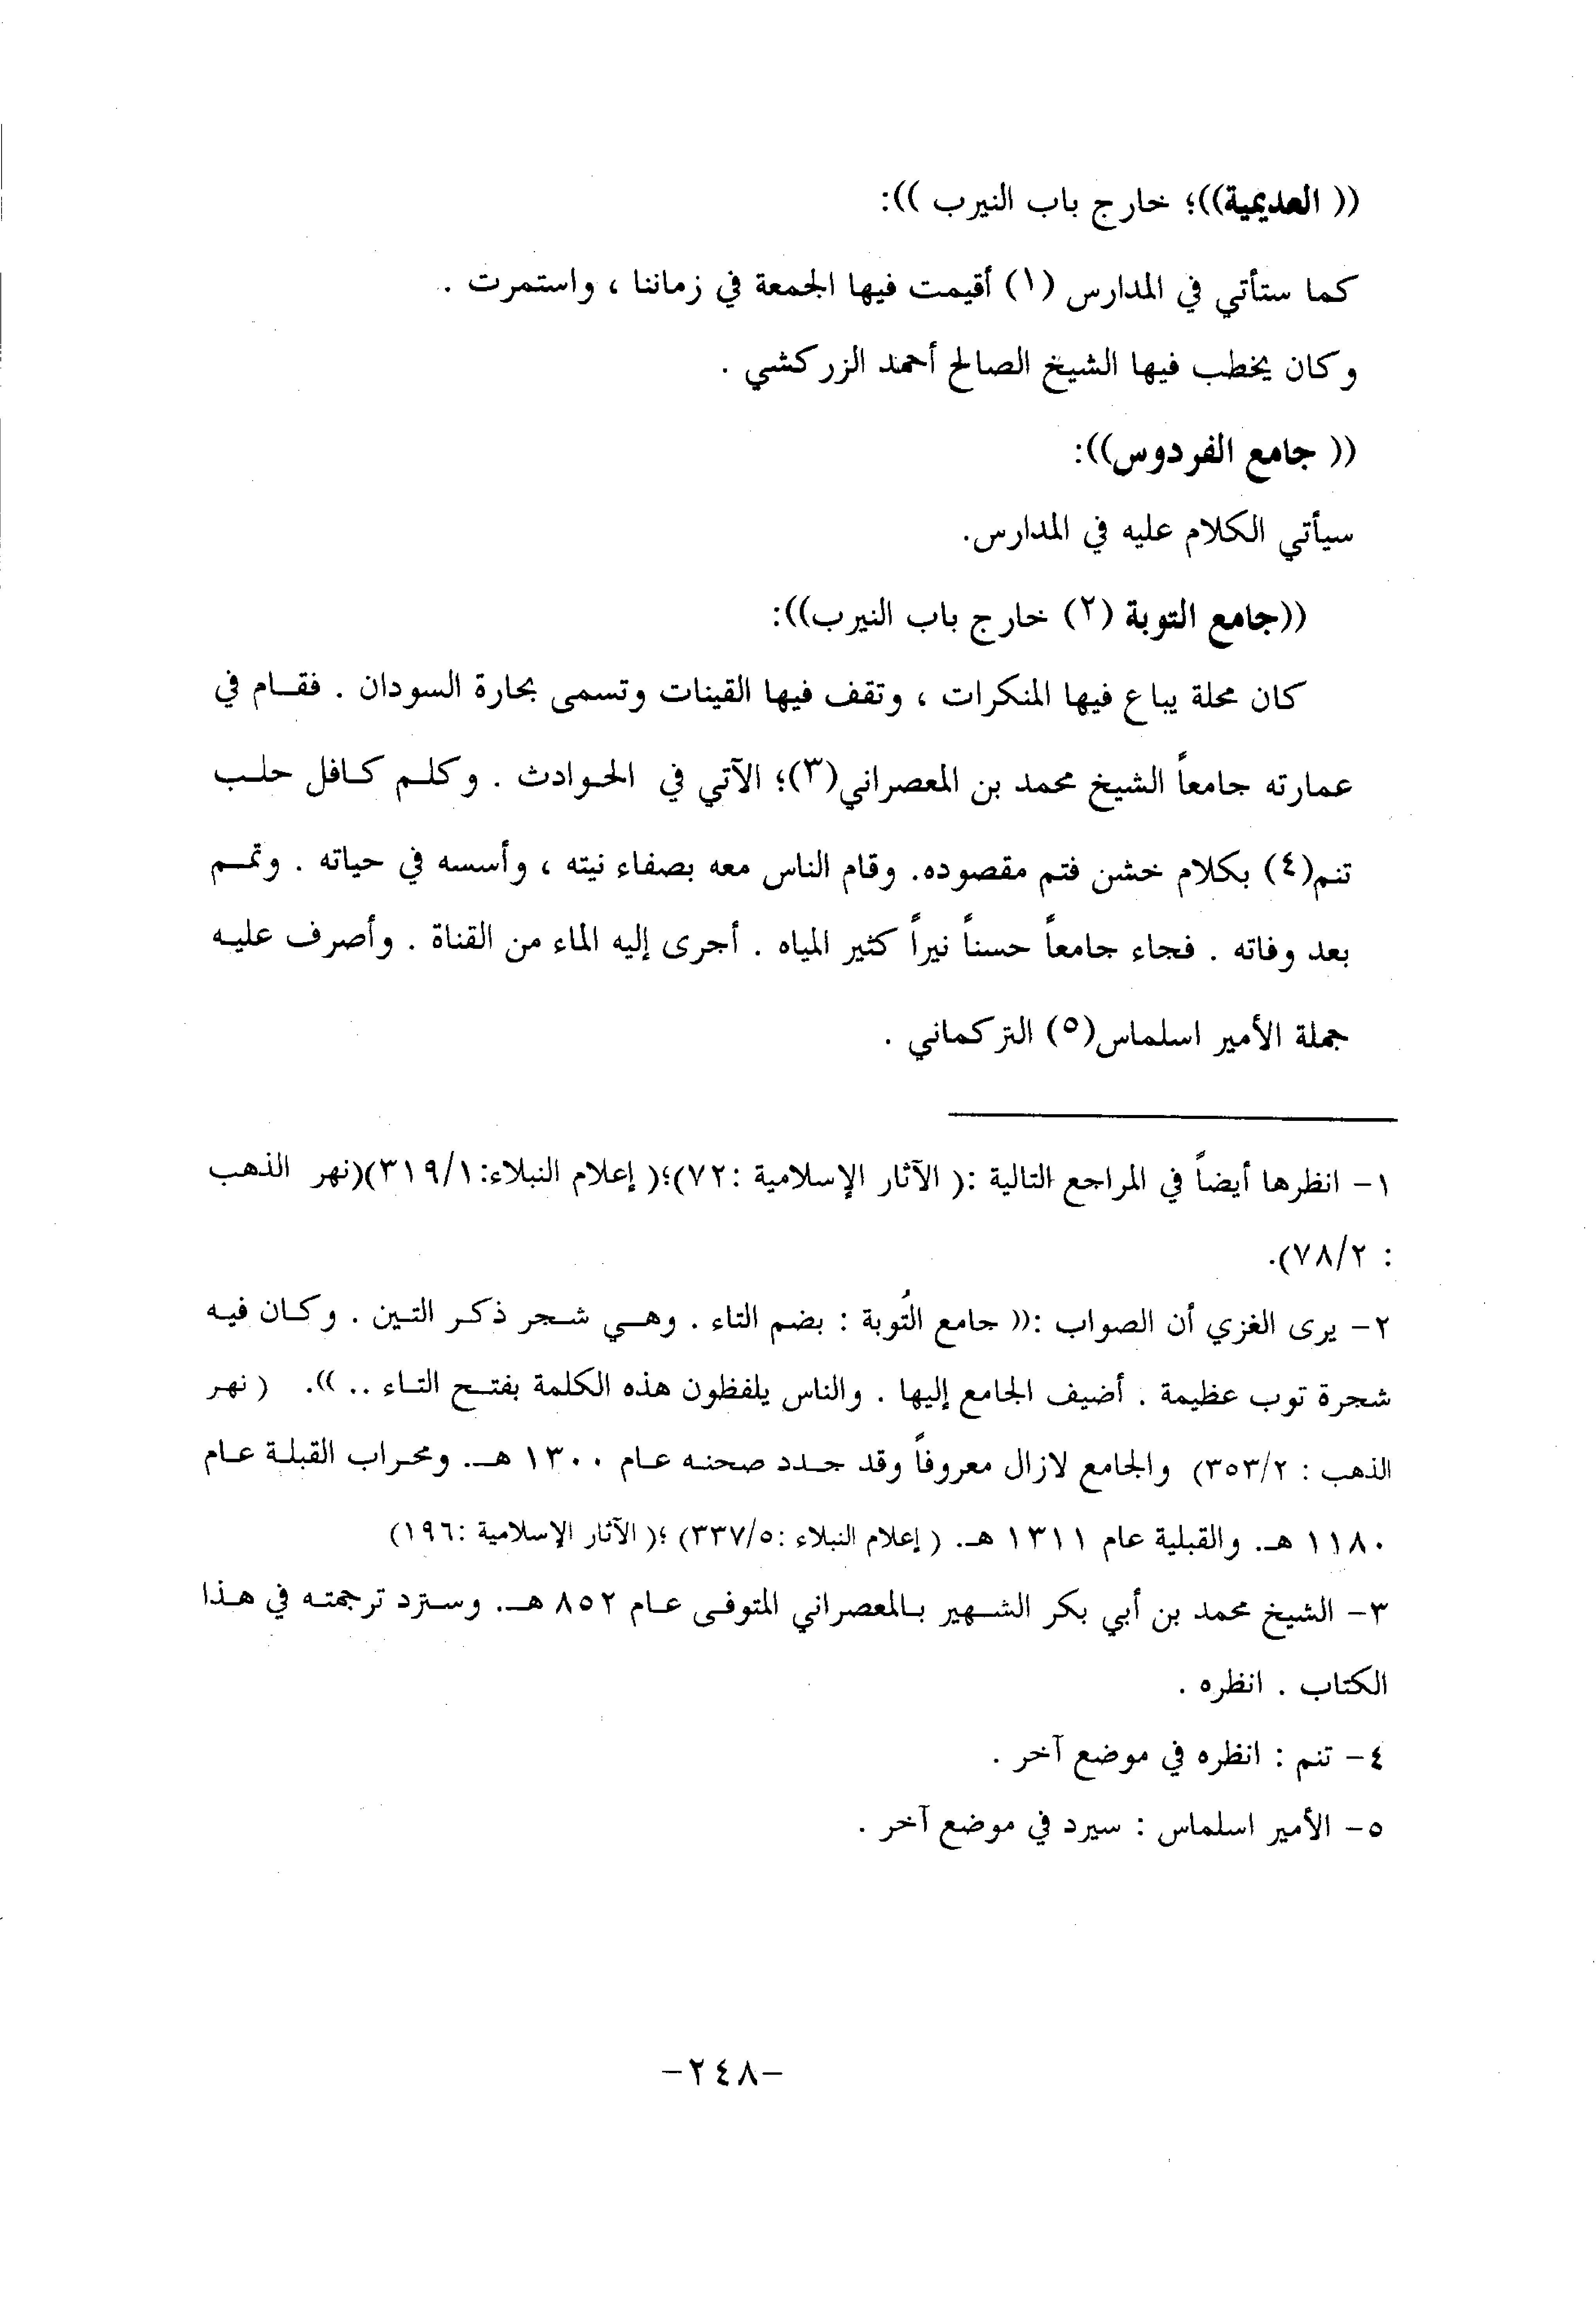 (( العديمية))؛ خارج باب النيرب )):
كما ستأتي في المدارس (١) أقيمت فيها الجمعة في زماننا ، واستمرت .
وكان يخطب فيها الشيخ الصالح أحمد الزركشي .
(( جامع الفردوس)):
سيأتي الكلام عليه في المدارس.
((جامع التوبة (٢) خارج باب النيرب)):
كان محلة يباع فيها المنكرات ، وتقف فيها القينات وتسمى بحارة السودان . فقام في
عمارته جامعاً الشيخ محمد بن المعصراني(٣)؛ الآتي في الحوادث . وكلم كافل حلب
تنم(٤) بكلام خشن فتم مقصوده. وقام الناس معه بصفاء نيته ، وأسسه في حياته . وتمم
بعد وفاته . فجاء جامعاً حسناً نيراً كثير المياه . أجرى إليه الماء من القناة . وأصرف عليه
جملة الأمير اسلماس(٥) التركماني .
١- انظرها أيضاً في المراجع التالية :( الآثار الإسلامية :٧٢)؛( إعلام النبلاء:٣١٩/١)(نهر الذهب
: ٧٨/٢).
٢- يرى الغزي أن الصواب :(( جامع التُوبة : بضم التاء . وهي شجر ذكر التين . وكان فيه
شجرة توب عظيمة . أضيف الجامع إليها . والناس يلفظون هذه الكلمة بفتح التاء .. )). ( نهر
الذهب : ٣٥٣/٢) والجامع لازال معروفاً وقد جدد صحنه عام ١٣٠٠ هـ. ومحراب القبلة عام
١١٨٠ هـ. والقبلية عام ١٣١١ هـ. ( إعلام النبلاء :٣٣٧/٥) ؛( الآثار الإسلامية :١٩٦)
٣- الشيخ محمد بن أبي بكر الشهير بالمعصراني المتوفى عام ٨٥٢ هـ. وسترد ترجمته في هذا
الكتاب . انظره .
٤- تنم : انظره في موضع آخر .
٥- الأمير اسلماس : سيرد في موضع آخر .
-٢٤٨-